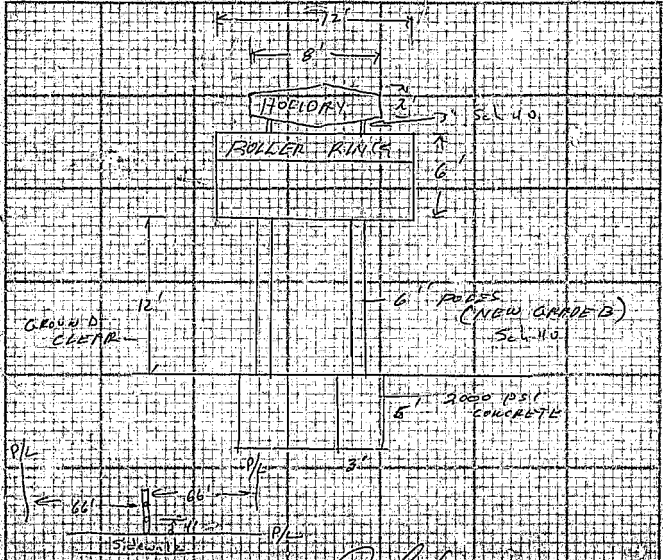 12'
8'
HOLIDAY
2'
3" Sch 40
ROLLER RINK
6'
12'
GROUND
CLEAR
6" POLES
(NEW GRADE B)
Sch 40
5'
2000 PSI
CONCRETE
3'
P/L
P/L
66'
66'
P/L
Sidewalk